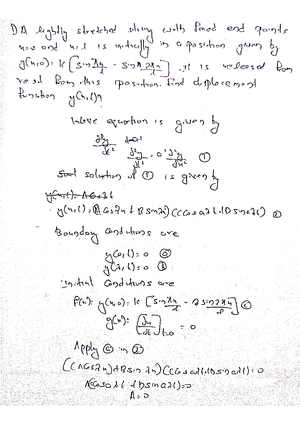 A tightly stretched string with fixed end points
x=0 and x=l is initially in a position given by
y(x,0)= k[sin πx/l - sin 2πx/l], it is released from
rest from this position. Find displacement
function y(x,t)
Wave equation is given by
∂²y/∂t² = a² ∂²y/∂x² ①
solution of ① is given by
y(x,t)=(A Cosλx + B sinλx) (C Cosaλt + D sinaλt) ②
Boundary Conditions are
y(0,t)=0 ⓐ
y(l,t)=0 ⓑ
initial Conditions are
f(x): y(x,0)= k[sin πx/l - sin 2πx/l] ⓒ
g(x): [∂y/∂t] t=0 = 0
Apply ⓐ in ②
(A Cos λ(0)+B sin λ(0)) (C Cos aλt + D sin aλt)=0
A(C Cos aλt + D sin aλt)=0
A=0